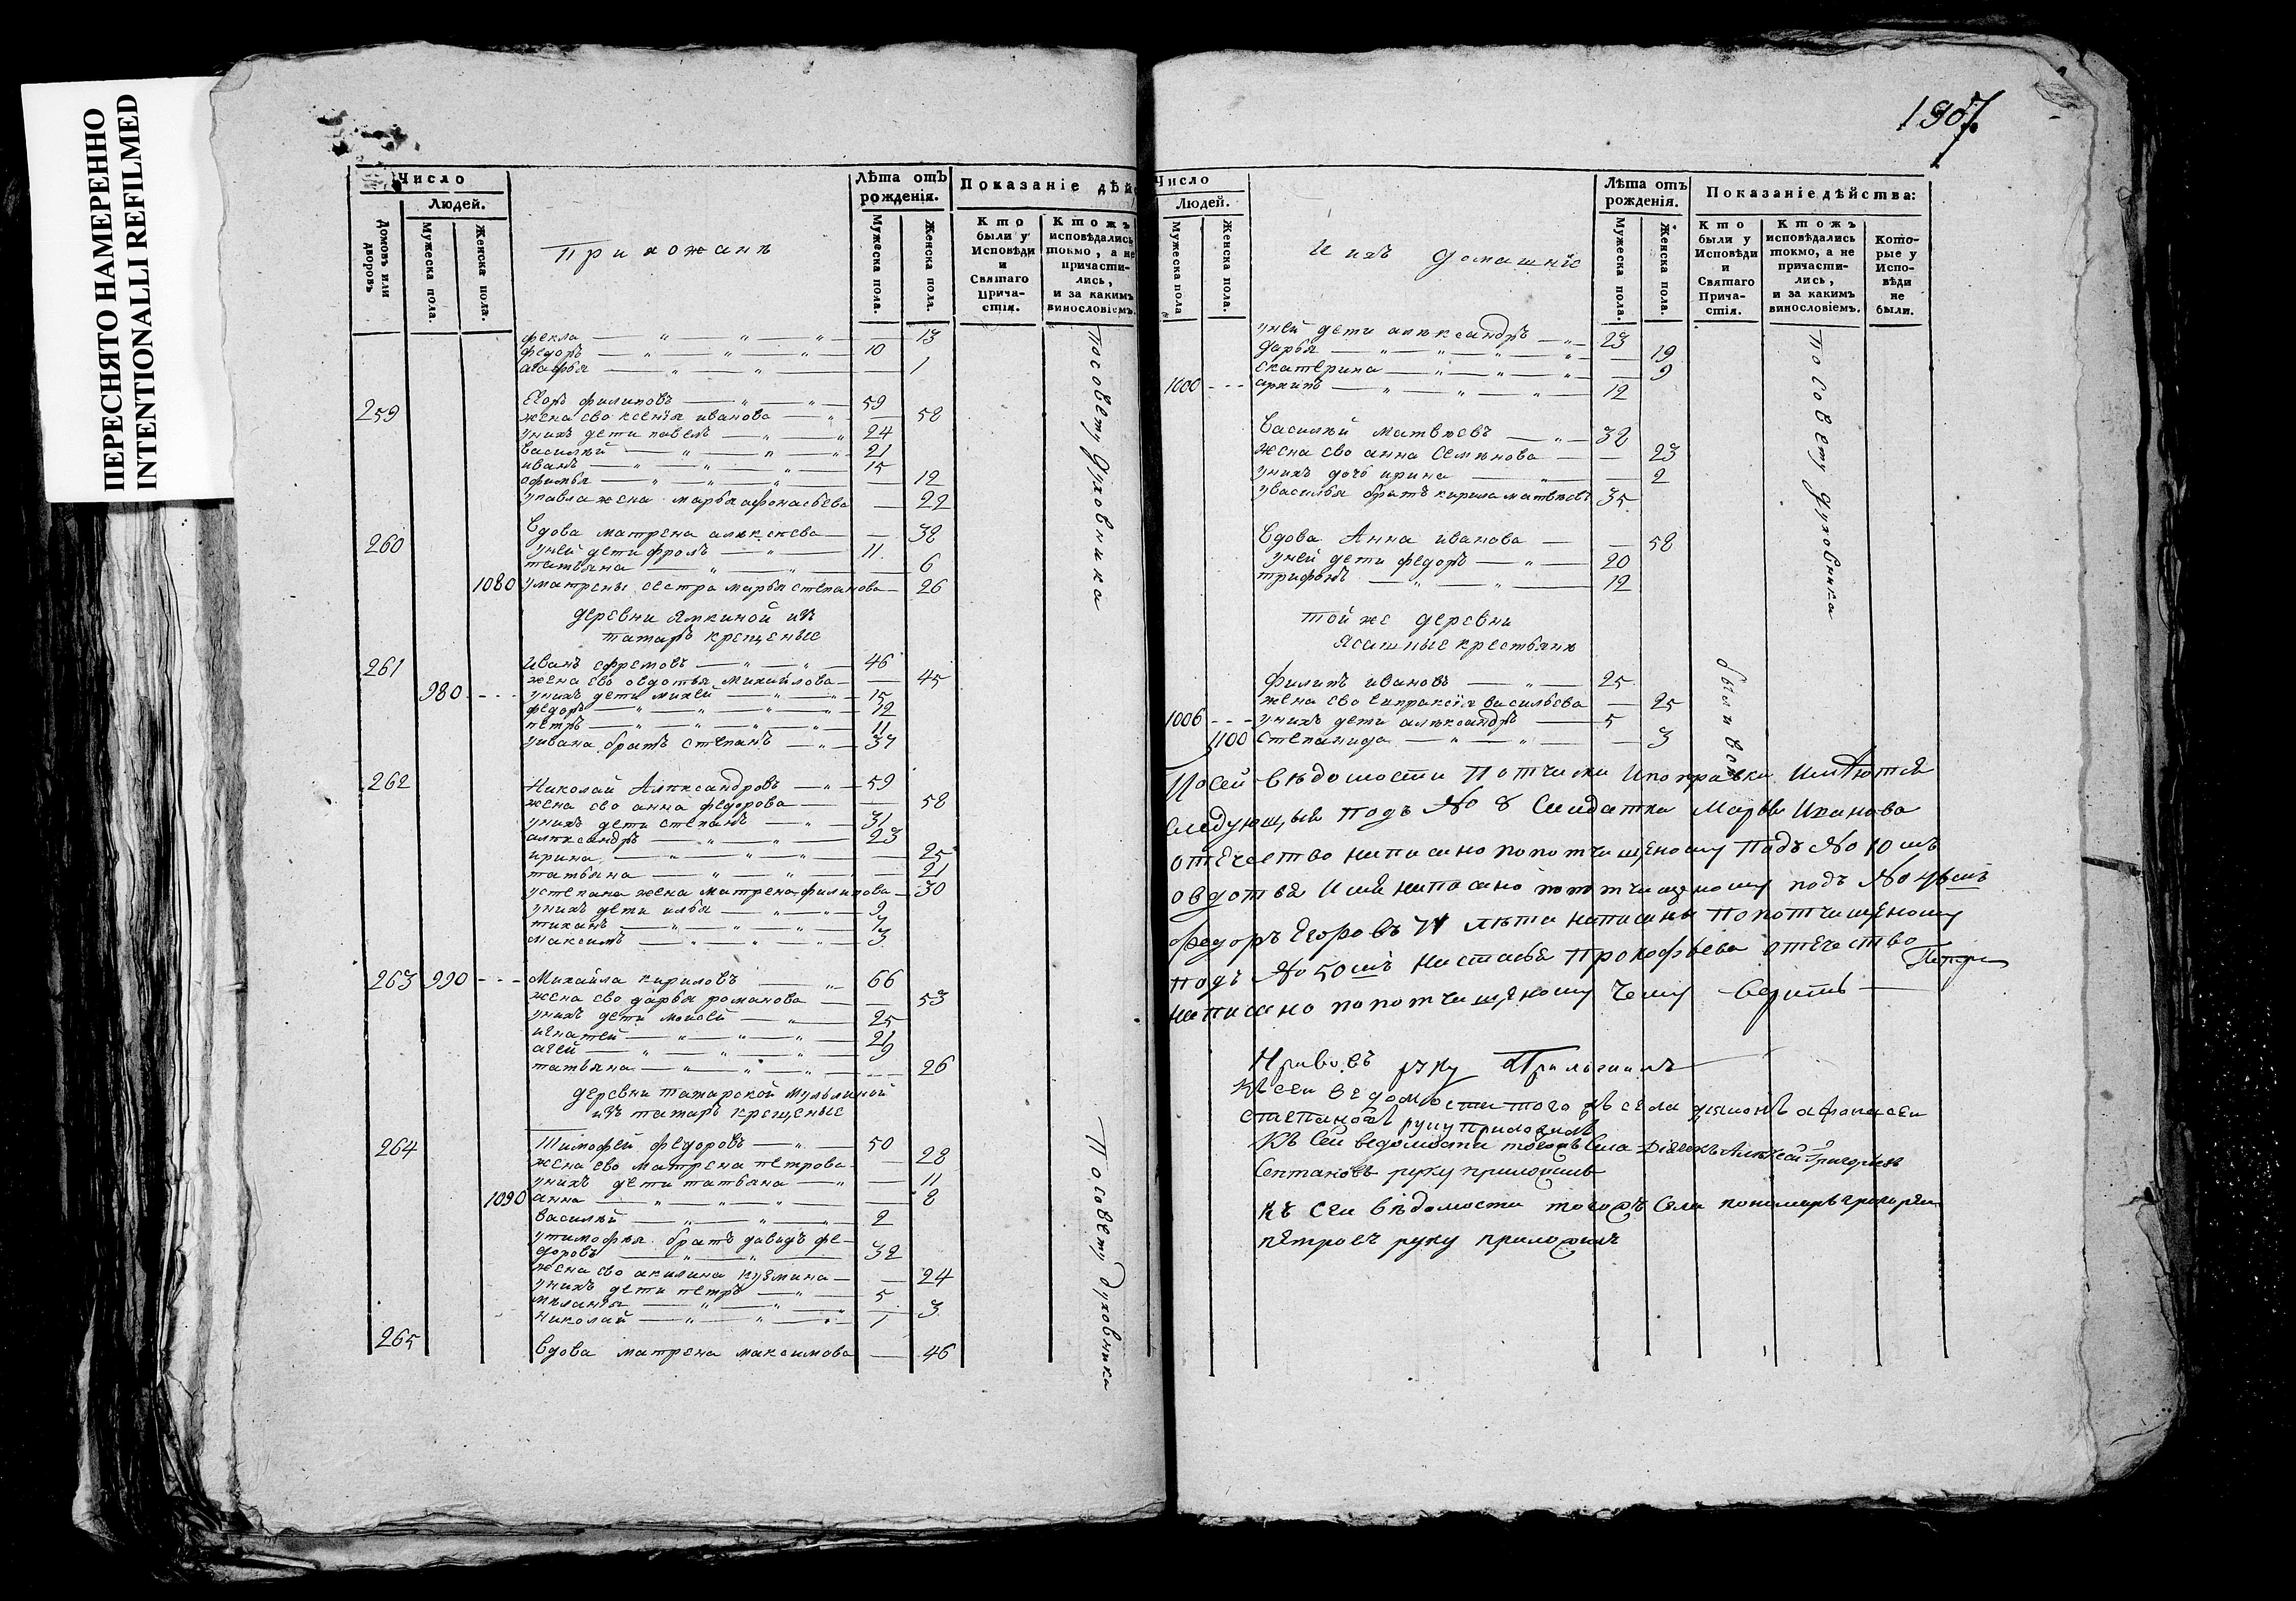 ПЕРЕСНЯТО НАМЕРЕННО
INTENTIONALLI REFILMED
Число
Людей.
Домовъ или дворовъ
Мужеска пола.
Женска пола.
Прихожанѣ
Лѣта отъ рожденія.
Мужеска пола.
Женска пола.
Показаніе дѣй
Кто были у Исповѣди и Святаго Причастія.
Ктожъ исповѣдались токмо, а не причастились, и за какимъ винословіемъ.
фекла — 13
федоръ — 10
агафья — 1
259 Егоръ филиповъ — 59
жена ево ксенїя иванова — 58
унихъ дети павелъ — 24
василѣй — 21
иванъ — 15
офимья — 12
упавла жена марья афонасьева — 22
260 Вдова матрена алѣксѣева — 38
уней дети фролъ — 11
татьяна — 6
1080 уматрены сестра марья степанова — 26
деревни Ямкиной изъ
татаръ крещеные
261 Иванъ ефремовъ — 46
жена ево овдотья михайлова — 45
980 унихъ дети михей — 15
федоръ — 12
петръ — 11
уивана братъ степанъ — 37
262 Николай Алѣксандровъ — 59
жена ево анна федорова — 58
унихъ дети степанъ — 31
алѣксандръ — 23
ирина — 25
татьяна — 21
устепана жена матрена филипова — 30
унихъ дети илья — 9
тиханъ — 7
максимъ — 3
263 990 Михайла кириловъ — 66
жена ево дарья романова — 53
унихъ дети моисей — 25
игнатей — 21
агей — 9
татьяна — 26
деревни татарской
изъ татаръ крещеные
264 Тимофей федоровъ — 50
жена ево матрена петрова — 28
унихъ дети татьяна — 11
1090 анна — 8
василѣй — 2
утимофѣя братъ давидъ фе-
доровъ — 32
жена ево акилина кузмина — 24
унихъ дети петръ — 5
меланья — 3
николай — 1
265 Вдова матрена максимова — 46
посовету духовника
Посовету духовника
1907
Число
Людей.
Мужеска пола
Женска пола.
И ихъ домашнїе
Лѣта отъ рожденія.
Мужеска пола.
Женска пола.
Показаніе дѣйства:
Кто были у Исповѣди и Святаго Причастія.
Ктожъ исповѣдались токмо, а не причастились, и за какимъ винословіемъ.
Которые у Исповѣди не были.
уней дети алѣксандръ — 23
дарья — 19
екатерина — 9
1000 архипъ — 12
Василѣй матвѣевъ — 32
жена ево анна семѣнова — 23
унихъ дочь ирина — 2
увасилья братъ кирила матвѣевъ 35
Вдова Анна иванова — 58
уней дети федоръ — 20
трифонъ — 12
той же деревни
ясашные крестьянѣ
филипъ ивановъ — 25
жена ево евпраксїя васильева — 25
1006 унихъ дети алѣксандръ — 5
1100 степанида — 3
посовету духовника
были все
Посей вѣдомости потчиски ипоправки имѣются
следующыя подъ № 8 салдатка Марья Иванова
отечество написано попотчищеному подъ № 10мъ
овдотья имя написано попотчищеному подъ №
федоръ Егоровъ лѣта написаны попотчищеному
подъ № 50мъ настасья прокофьева отечество
написано попотчищеному чему верить
руку
Къ сей ведомости того жъ села дьяконъ афонасей
степановъ руку приложилъ
Къ сей ведомости тогожъ села Дїячокъ Алѣксей Григорьевъ
руку приложилъ
къ сей вѣдомости тогожъ села пономарь григорей
петровъ руку приложилъ